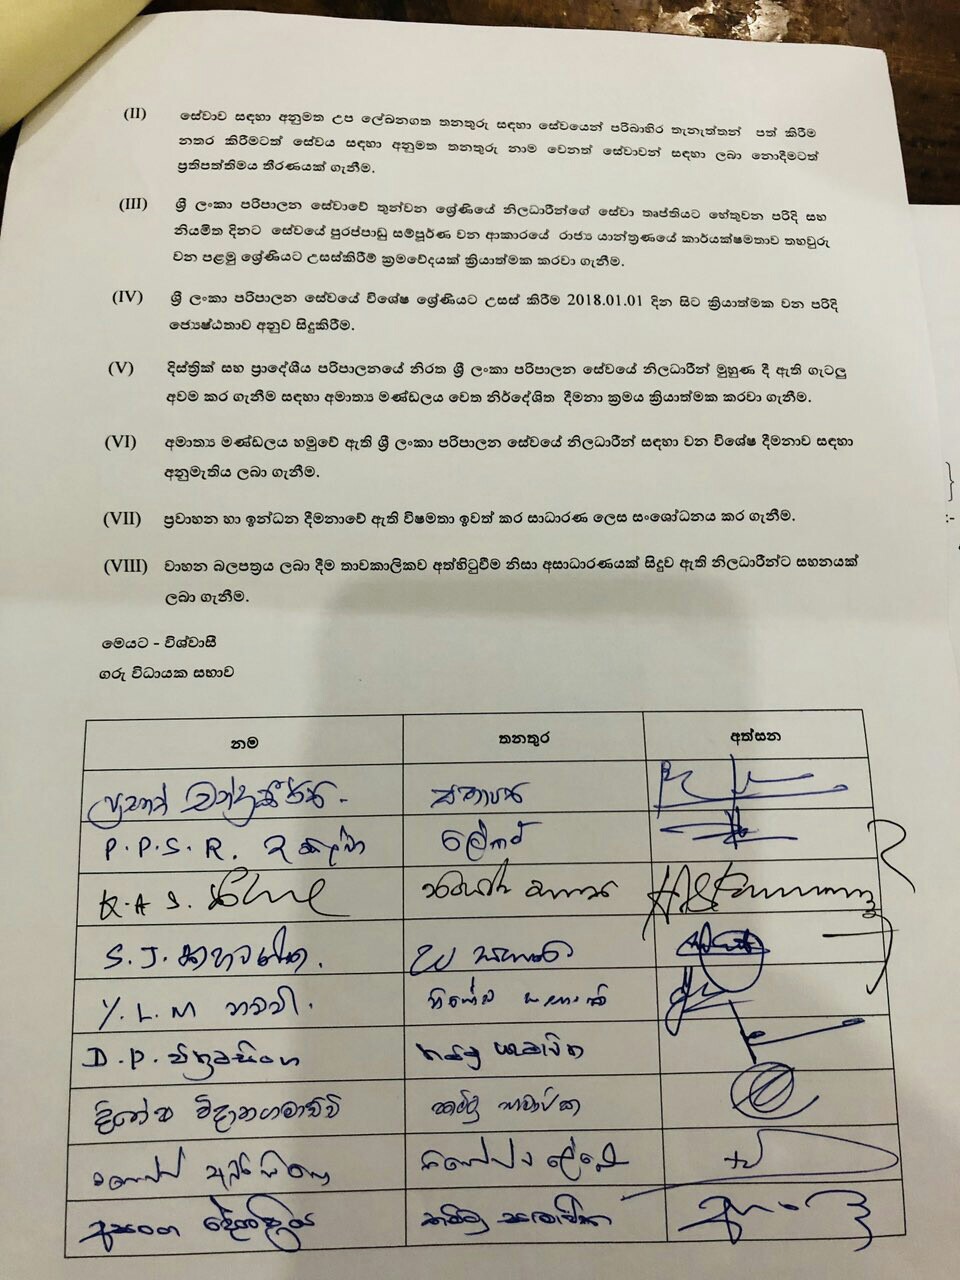 (II) සේවාව සඳහා අනුමත උප ලේඛනගත තනතුරු සඳහා සේවයෙන් පරිබාහිර තැනැත්තන් පත් කිරීම
නතර කිරීමටත් සේවය සඳහා අනුමත තනතුරු නාම වෙනත් සේවාවන් සඳහා ලබා නොදීමටත්
ප්‍රතිපත්තිමය තීරණයක් ගැනීම.
(III) ශ්‍රී ලංකා පරිපාලන සේවාවේ තුන්වන ශ්‍රේණියේ නිලධාරීන්ගේ සේවා තෘප්තියට හේතුවන පරිදි සහ
නියමිත දිනට සේවයේ පුරප්පාඩු සම්පූර්ණ වන ආකාරයේ රාජ්‍ය යාන්ත්‍රණයේ කාර්යක්ෂමතාව තහවුරු
වන පළමු ශ්‍රේණියට උසස්කිරීම් ක්‍රමවේදයක් ක්‍රියාත්මක කරවා ගැනීම.
(IV) ශ්‍රී ලංකා පරිපාලන සේවයේ විශේෂ ශ්‍රේණියට උසස් කිරීම 2018.01.01 දින සිට ක්‍රියාත්මක වන පරිදි
ජ්‍යෙෂ්ඨතාව අනුව සිදුකිරීම.
(V) දිස්ත්‍රික් සහ ප්‍රාදේශීය පරිපාලනයේ නිරත ශ්‍රී ලංකා පරිපාලන සේවයේ නිලධාරීන් මුහුණ දී ඇති ගැටලු
අවම කර ගැනීම සඳහා අමාත්‍ය මණ්ඩලය වෙත නිර්දේශිත දීමනා ක්‍රමය ක්‍රියාත්මක කරවා ගැනීම.
(VI) අමාත්‍ය මණ්ඩලය හමුවේ ඇති ශ්‍රී ලංකා පරිපාලන සේවයේ නිලධාරීන් සඳහා වන විශේෂ දීමනාව සඳහා
අනුමැතිය ලබා ගැනීම.
(VII) ප්‍රවාහන හා ඉන්ධන දීමනාවේ ඇති විෂමතා ඉවත් කර සාධාරණ ලෙස සංශෝධනය කර ගැනීම.
(VIII) වාහන බලපත්‍රය ලබා දීම තාවකාලිකව අත්හිටුවීම නිසා අසාධාරණයක් සිදුව ඇති නිලධාරීන්ට සහනයක්
ලබා ගැනීම.
මෙයට - විශ්වාසී
ගරු විධායක සභාව
නම තනතුර අත්සන
සභාපති
P.P.S.R. ලේකම්
K.A.S.
S.J.
Y.L.M නවවි.
D.P. වික්‍රමසිංහ
දිනේෂ් විදානගමාච්චි
අසංග